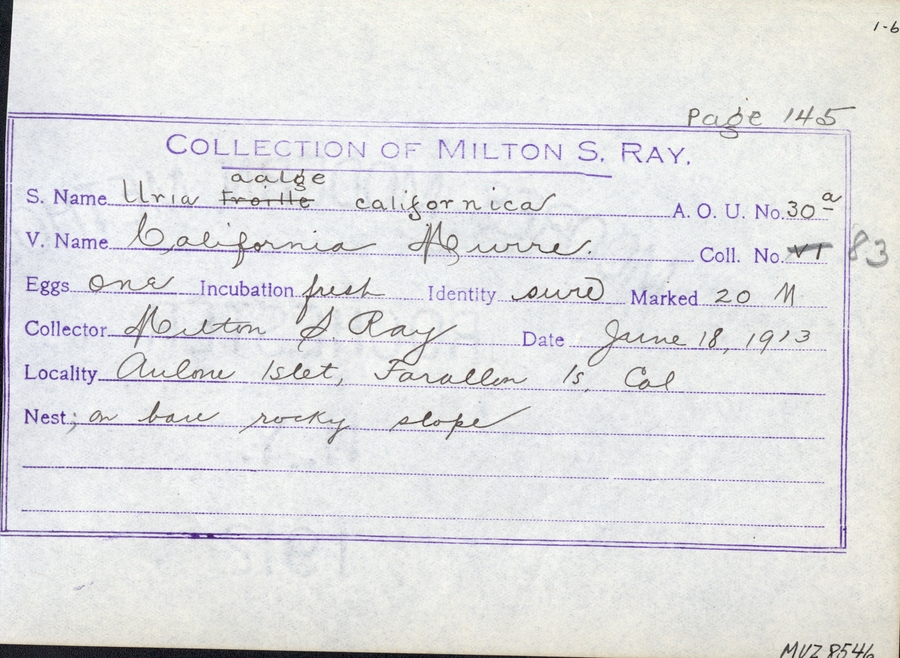 1-6
Page 145
COLLECTION OF MILTON S. RAY.
aalge
S. Name Uria troille californica A. O. U. No. 30a
V. Name California Murre. Coll. No. VI 83
Eggs one Incubation fresh Identity sure Marked 20 M
Collector Milton S Ray Date June 18, 1913
Locality Aulone Islet, Farallon Is, Cal
Nest; on bare rocky slope
MVZ 8546